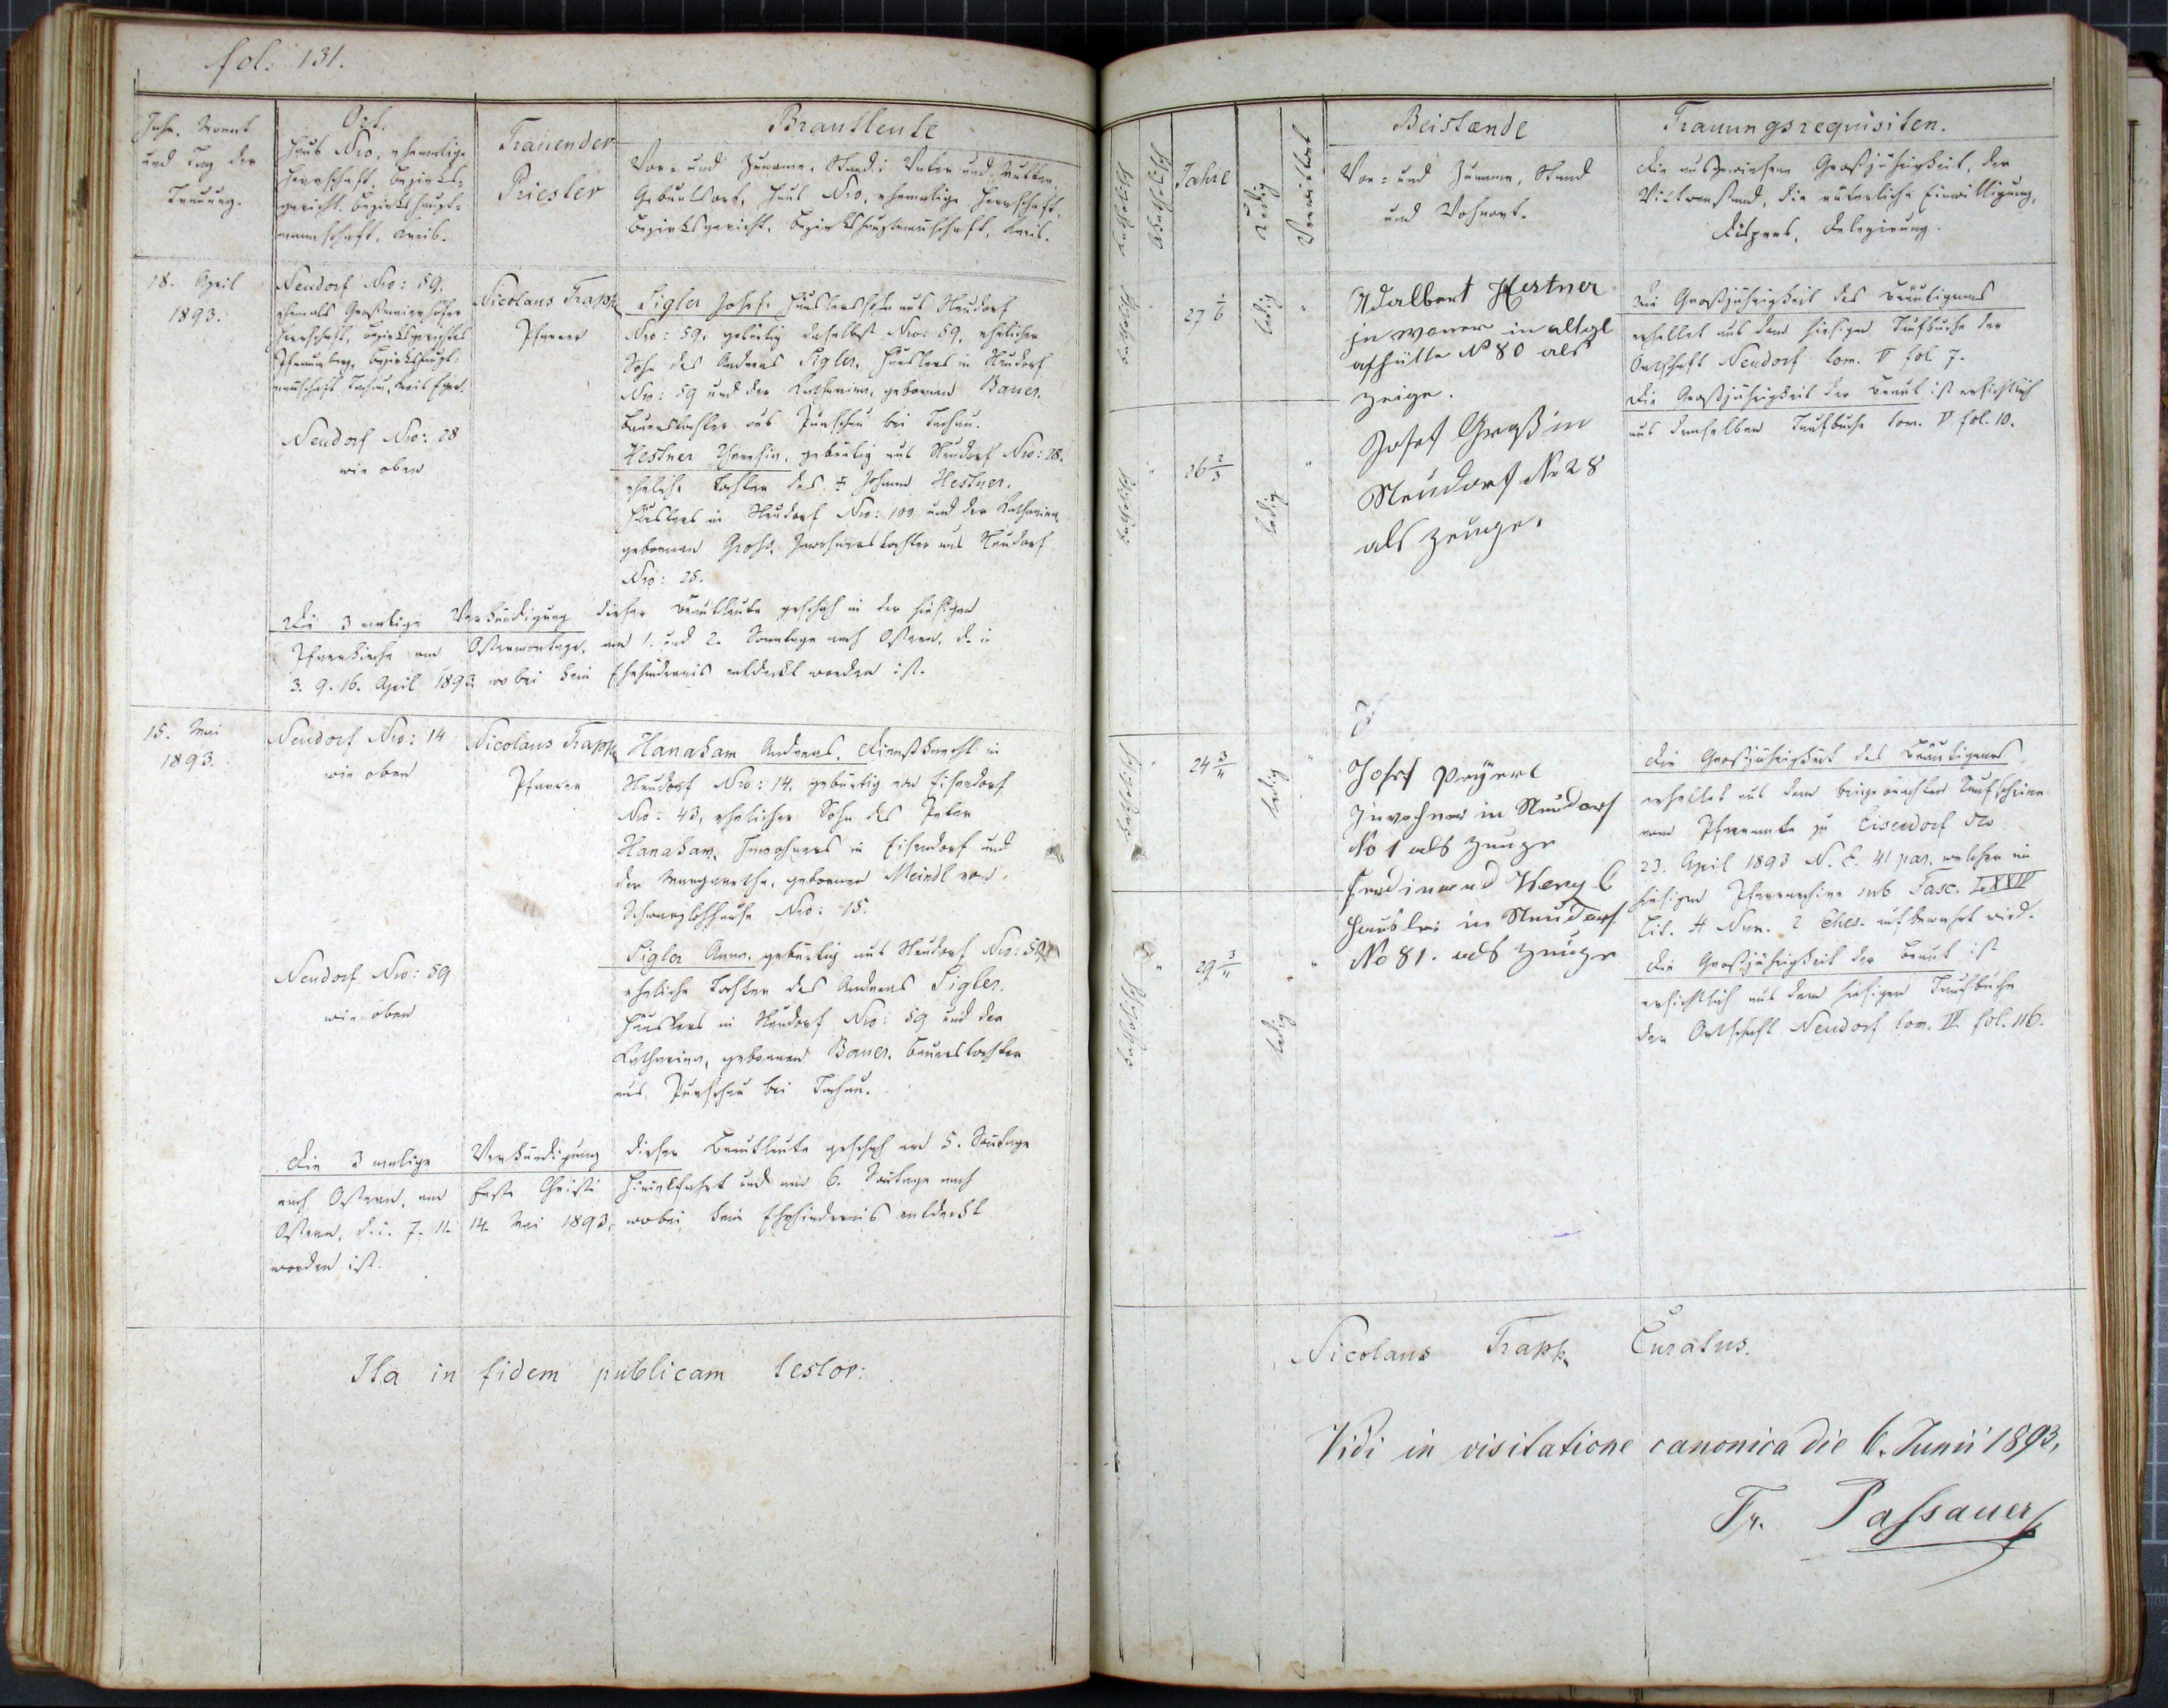 fol. 131.
Jahr, Monat
und Tag der
Trauung.
Ort.
Haus Nro, ehemalige
Herrschaft, Bezirks-
gericht, Bezirkshaupt-
mannschaft, Kreis.
Trauender
Priester
Brautleute
Vor- und Zuname, Stand; Vater und Mutter,
Geburtsort, Haus Nro, ehemalige Herrschaft,
Bezirksgericht, Bezirkshauptmannschaft, Kreis.
18. April
1893.
Neudorf Nro: 59.
ehemals Großmaierhöfer
Herrschaft, Bezirksgerichtes
Pfraumberg, Bezirkshaupt-
mannschaft Tachau, Kreis Eger.
Neudorf Nro: 28
wie oben
Nicolaus Trapp
Pfarrer
Sigler Josef, Häuslerssohn aus Neudorf
Nro: 59, gebürtig daselbst Nro: 59, ehelicher
Sohn des Andreas Sigler, Häuslers in Neudorf
Nro: 59 und der Katharina, geborenen Bauer,
Bauerstochter aus Purschau bei Tachau.
Hestner Theresia, gebürtig aus Neudorf Nro: 28.
eheliche Tochter des † Johann Hestner,
Häuslers in Neudorf Nro: 100 und der Katharina
geborenen Groß, Inwohnerstochter aus Neudorf
Nro: 25.
Die 3 malige Verkündigung dieser Brautleute geschah in der hiesigen
Pfarrkirche am Ostermontage, am 1. und 2. Sonntage nach Ostern, d. i.
3. 9. 16. April 1893 wobei kein Ehehindernis entdeckt worden ist.
15. Mai
1893.
Neudorf Nro: 14
wie oben
Neudorf Nro: 59
wie oben
Nicolaus Trapp
Pfarrer
Hanakam Andreas, Dienstknecht in
Neudorf Nro: 14, gebürtig von Eisendorf
Nro: 43, ehelicher Sohn des Peter
Hanakam, Inwohners in Eisendorf und
der Margaretha, geborenen Meindl von
Nro: 15.
Sigler Anna, gebürtig aus Neudorf Nro: 59
eheliche Tochter des Andreas Sigler,
Häuslers in Neudorf Nro: 59 und der
Katharina, geborenen Bauer, Bauerstochter
aus Purschau bei Tachau.
Die 3 malige Verkündigung dieser Brautleute geschah am 5. Sontage
nach Ostern, am Feste Christi Himelfahrt und am 6. Sontage nach
Ostern, d. i. 7. 11. 14. Mai 1893, wobei kein Ehehindernis entdeckt
worden ist.
Ita in fidem publicam testor:
Katholisch
Jahre
Ledig
Verwittwet
Beistænde
Vor- und Zuname, Stand
und Wohnort.
Trauungsrequisiten.
Die ausgewiesene Großjährigkeit, der
Wittwenstand, die väterliche Einwilligung,
Dispens, Delegierung.
katholisch
27 1/6
ledig
"
katholisch
"
26 2/3
ledig
"
Adalbert Hestner
in altgl
ashütte N° 80 als
zeige.
Josef Groß in
Neudorf Nr 28
als Zeuge.
Die Großjährigkeit des Bräutigams
erhellet aus dem hiesigen Taufbuche der
Ortschaft Neudorf tom. V fol 7.
Die Großjährigkeit der Braut ist ersichtlich
aus demselben Taufbuche tom. V fol. 10.
katholisch
"
24 3/4
ledig
"
katholisch
"
29 3/4
ledig
"
Josef
Inwohner in Neudorf
No 1 als Zeuge
Ferdinand
Häusler in Neudorf
No 81. als Zeuge
Die Großjährigkeit des Bräutigams
erhellet aus dem beigebrachten Taufscheine
vom Pfarramte zu Eisendorf dto
23. April 1893 N. E. 41 par, welcher im
hiesigen Pfarrarchive sub Fasc. LXXIV
Lit. H Num. 2 aufbewahrt wird.
Die Großjährigkeit der Braut ist
ersichtlich aus dem hiesigen Taufbuche
der Ortschaft Neudorf tom. IV fol. 116.
Nicolaus Trapp, Curatus.
Vidi in visitatione canonica die 6. Junii 1893.
Fr. Passauer